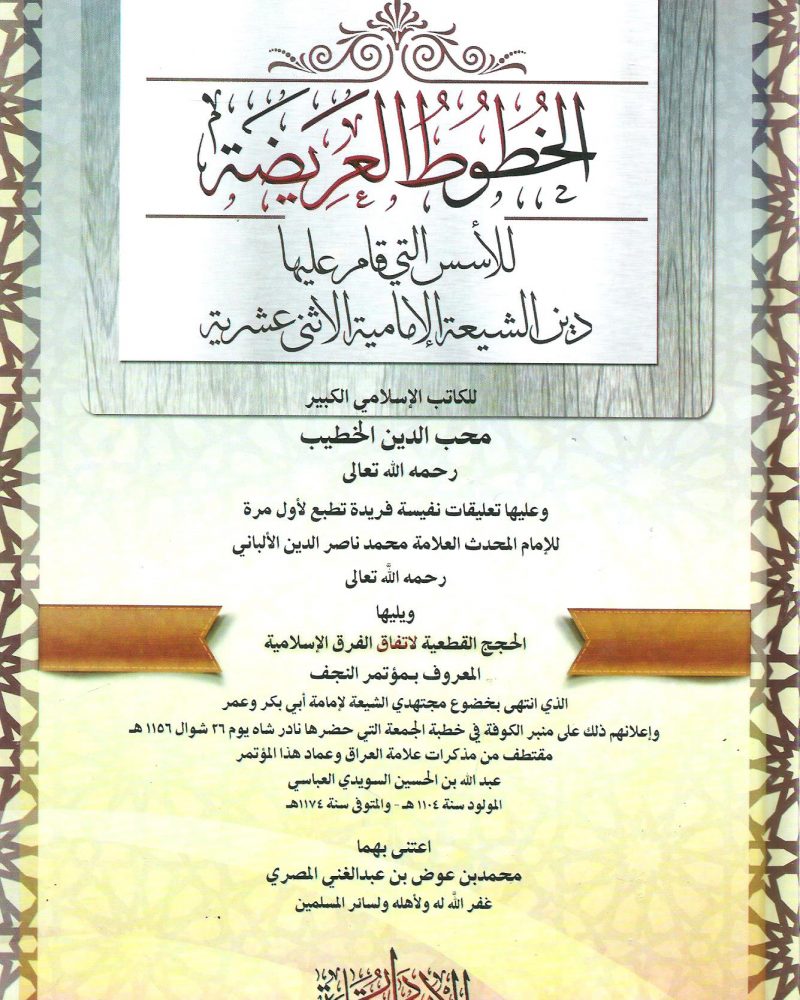 الخُطُوطُ العَرِيضَة
للأسس التي قام عليها
دين الشيعة الإمامية الاثنى عشرية
للكاتب الإسلامي الكبير
محب الدين الخطيب
رحمه الله تعالى
وعليها تعليقات نفيسة فريدة تطبع لأول مرة
للإمام المحدث العلامة محمد ناصر الدين الألباني
رحمه الله تعالى
ويليها
الحجج القطعية لاتفاق الفرق الإسلامية
المعروف بمؤتمر النجف
الذي انتهى بخضوع مجتهدي الشيعة لإمامة أبي بكر وعمر
وإعلانهم ذلك على منبر الكوفة في خطبة الجمعة التي حضرها نادر شاه يوم ٢٦ شوال ١١٥٦ هـ
مقتطف من مذكرات علامة العراق وعماد هذا المؤتمر
عبد الله بن الحسين السويدي العباسي
المولود سنة ١١٠٤ هـ - والمتوفى سنة ١١٧٤هـ
اعتنى بهما
محمدبن عوض بن عبدالغني المصري
غفر الله له ولأهله ولسائر المسلمين